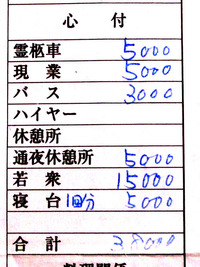 心付
霊柩車 5000
現業 5000
バス 3000
ハイヤー
休憩所
通夜休憩所 5000
若衆 15000
寝台1回分 5000
合計 38000